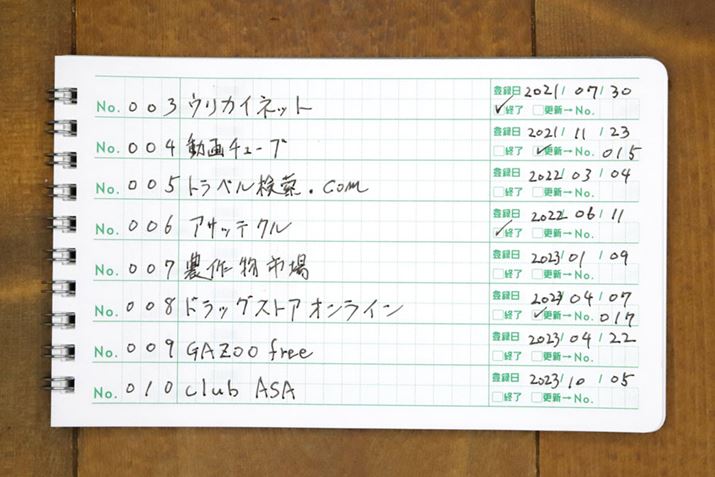 No. 003 ウリカイネット 登録日 2021/07/30
✓終了 □更新→No.
No. 004 動画チューブ 登録日 2021/11/23
□終了 ✓更新→No. 015
No. 005 トラベル検索.com 登録日 2022/03/04
□終了 □更新→No.
No. 006 アサッテクル 登録日 2022/06/11
✓終了 □更新→No.
No. 007 農作物市場 登録日 2023/01/09
□終了 □更新→No.
No. 008 ドラッグストアオンライン 登録日 2023/04/07
□終了 ✓更新→No. 017
No. 009 GAZOO free 登録日 2023/04/22
□終了 □更新→No.
No. 010 club ASA 登録日 2023/10/05
□終了 □更新→No.